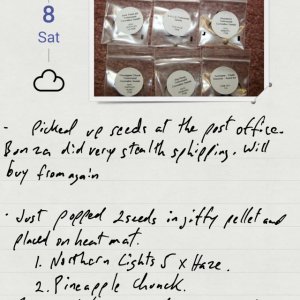 8
Sat
- Picked up seeds at the post office.
Bonza did very stealth shipping. Will
buy from again
- Just popped 2 seeds in jiffy pellet and
placed on heat mat.
1. Northern Lights 5 x Haze.
2. Pineapple Chunk.